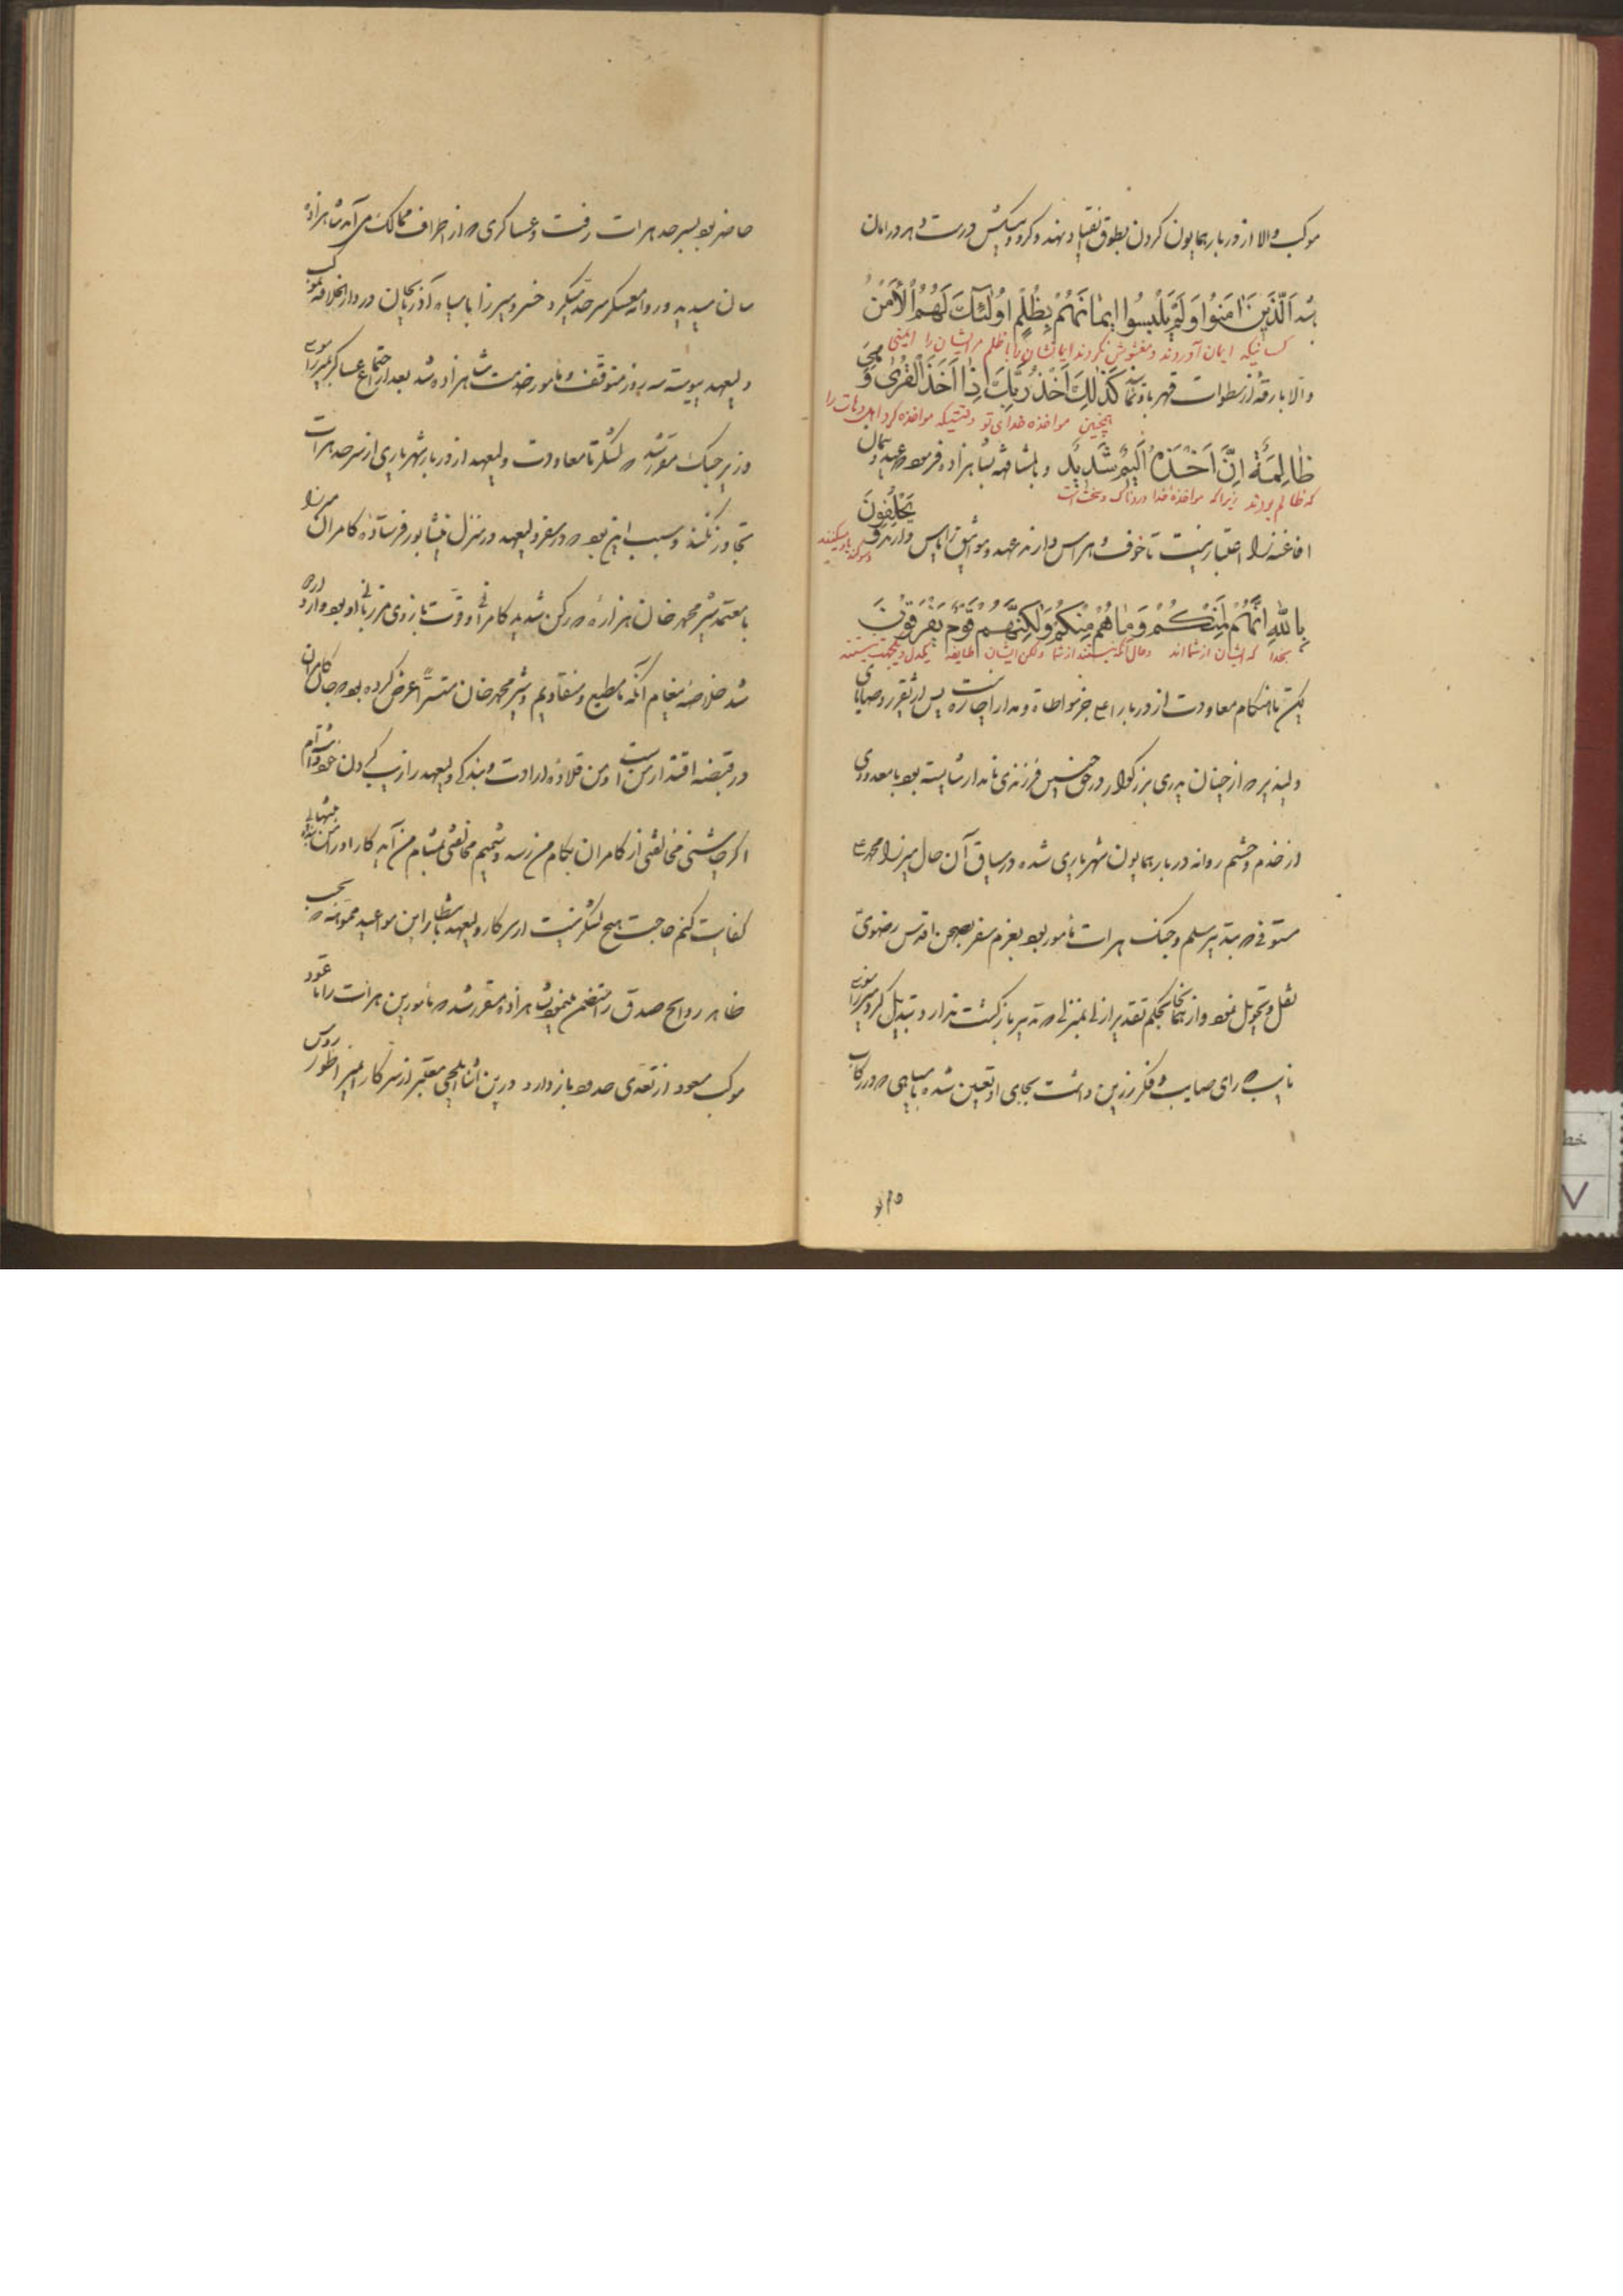 موکب والا از دربار همایون کردن بطوق انقیاد نهند و کرو و پیشکش درست و هر در امان
شد اَلَّذینَ اٰمَنُوا وَلَمْ یَلْبِسُوا ایمٰانَهُمْ بِظُلْمٍ اُولٰئِكَ لَهُمُ الْاَمْنُ
کسانیکه ایمان آوردند و مغشوش نکردند ایمانشان را با ظلم مر ایشان را ایمنی
والا بارقه از سطوات قهر باز نماید کَذٰلِكَ اَخْذُ رَبِّكَ اِذٰا اَخَذَ الْقُرٰی وَ هِیَ
همچنین مواخذه خدای تو وقتیکه مواخذه کرد اهل دهات را
ظٰالِمَةٌ اِنَّ اَخْذَهُ اَلیمٌ شَدیدٌ و بالمشافهه بشاهزاده فرمود عهد و پیمان
که ظالم بودند زیراکه مواخذه خدا دردناک و سخت است
افاغنه را اعتبار نیست تا خوف و هراس دارند عهد و موثیق را پاس دارند یَحْلِفُونَ
بِاللهِ اِنَّهُمْ لَمِنْکُمْ وَمٰا هُمْ مِنْکُمْ وَلٰکِنَّهُمْ قَوْمٌ یَفْرَقُونَ
بخدا که ایشان از شمااند و حال آنکه نیستند از شما ولکن ایشان طایفه یکدل و یکجهت نیستند
لیکن تا هنگام معاودت از دربار اعلی جز مواطاة و مدارا چاره نیست پس از تقریر وصایای
دلپذیر که از چنان پدری بزرکوار در حق چنین فرزندی نامدار شایسته بود با معدودی
از خدم و حشم روانه دربار همایون شهریاری شده در سیاق آن حال میرزا محمد علی
مستوفی که بتدبیر سلم و جنک هرات مأمور بود بعزم سفر بصحن اقدس رضوی
نقل و تحویل نمود و از آنجا بحکم تقدیر ازلی بمنزلی که تدبیر بازکشت ندارد تبدیل کرد میرزا موسی
نایب که رای صایب و فکر رزین داشت بجای او تعیین شده با سپاهی که در رکاب
حاضر بود بسرحد هرات رفت و عساکری که از اطراف ممالک می آمد شاهزاده
سان میدید و روانه معسکر سرحد میکرد خسرو میرزا با سپاه آذربایجان در دارالخلافه بموکب
ولیعهد پیوسته سه روز متوقف و مامور خدمت شاهزاده شد بعد از اجتماع عساکر میرزا موسی
وزیر جنک مقرر شد که لشکر تا معاودت ولیعهد از دربار شهریاری از سرحد هرات
تجاوز نکند و سبب این بود که در سفر ولیعهد در منزل نیشابور فرستاده کامران میرزا
با معتمد شیر محمد خان هزاره که رکن شدید کامرانی و قوت بازوی مرزبانی او بود وارد اردو
شد خلاصه پیغام آنکه ما مطیع و منقادیم و شیر محمد خان متستراً عرض کرده بود که جان کامران
در قبضه اقتدار من است و من قلاده ارادت و بندکی ولیعهد را زیب کردن خود دانسته ام
اکر چاشنی مخالفتی از کامران بکام من رسد و شمیم مخالفتی بمشام من آید کار او را من به تنهائی
کفایت کنم حاجت هیچ لشکر نیست از سرکار ولیعهد باستظهار این مواعید مموّهه که بحسب
ظاهر روایح صدق را متضمن میبود شاهزاده مقرر شد که مأمورین هرات را تا عود
موکب مسعود از تعدی حدود باز دارد در بین اثنا ایلچی معتبر از سرکار امپراطور روس